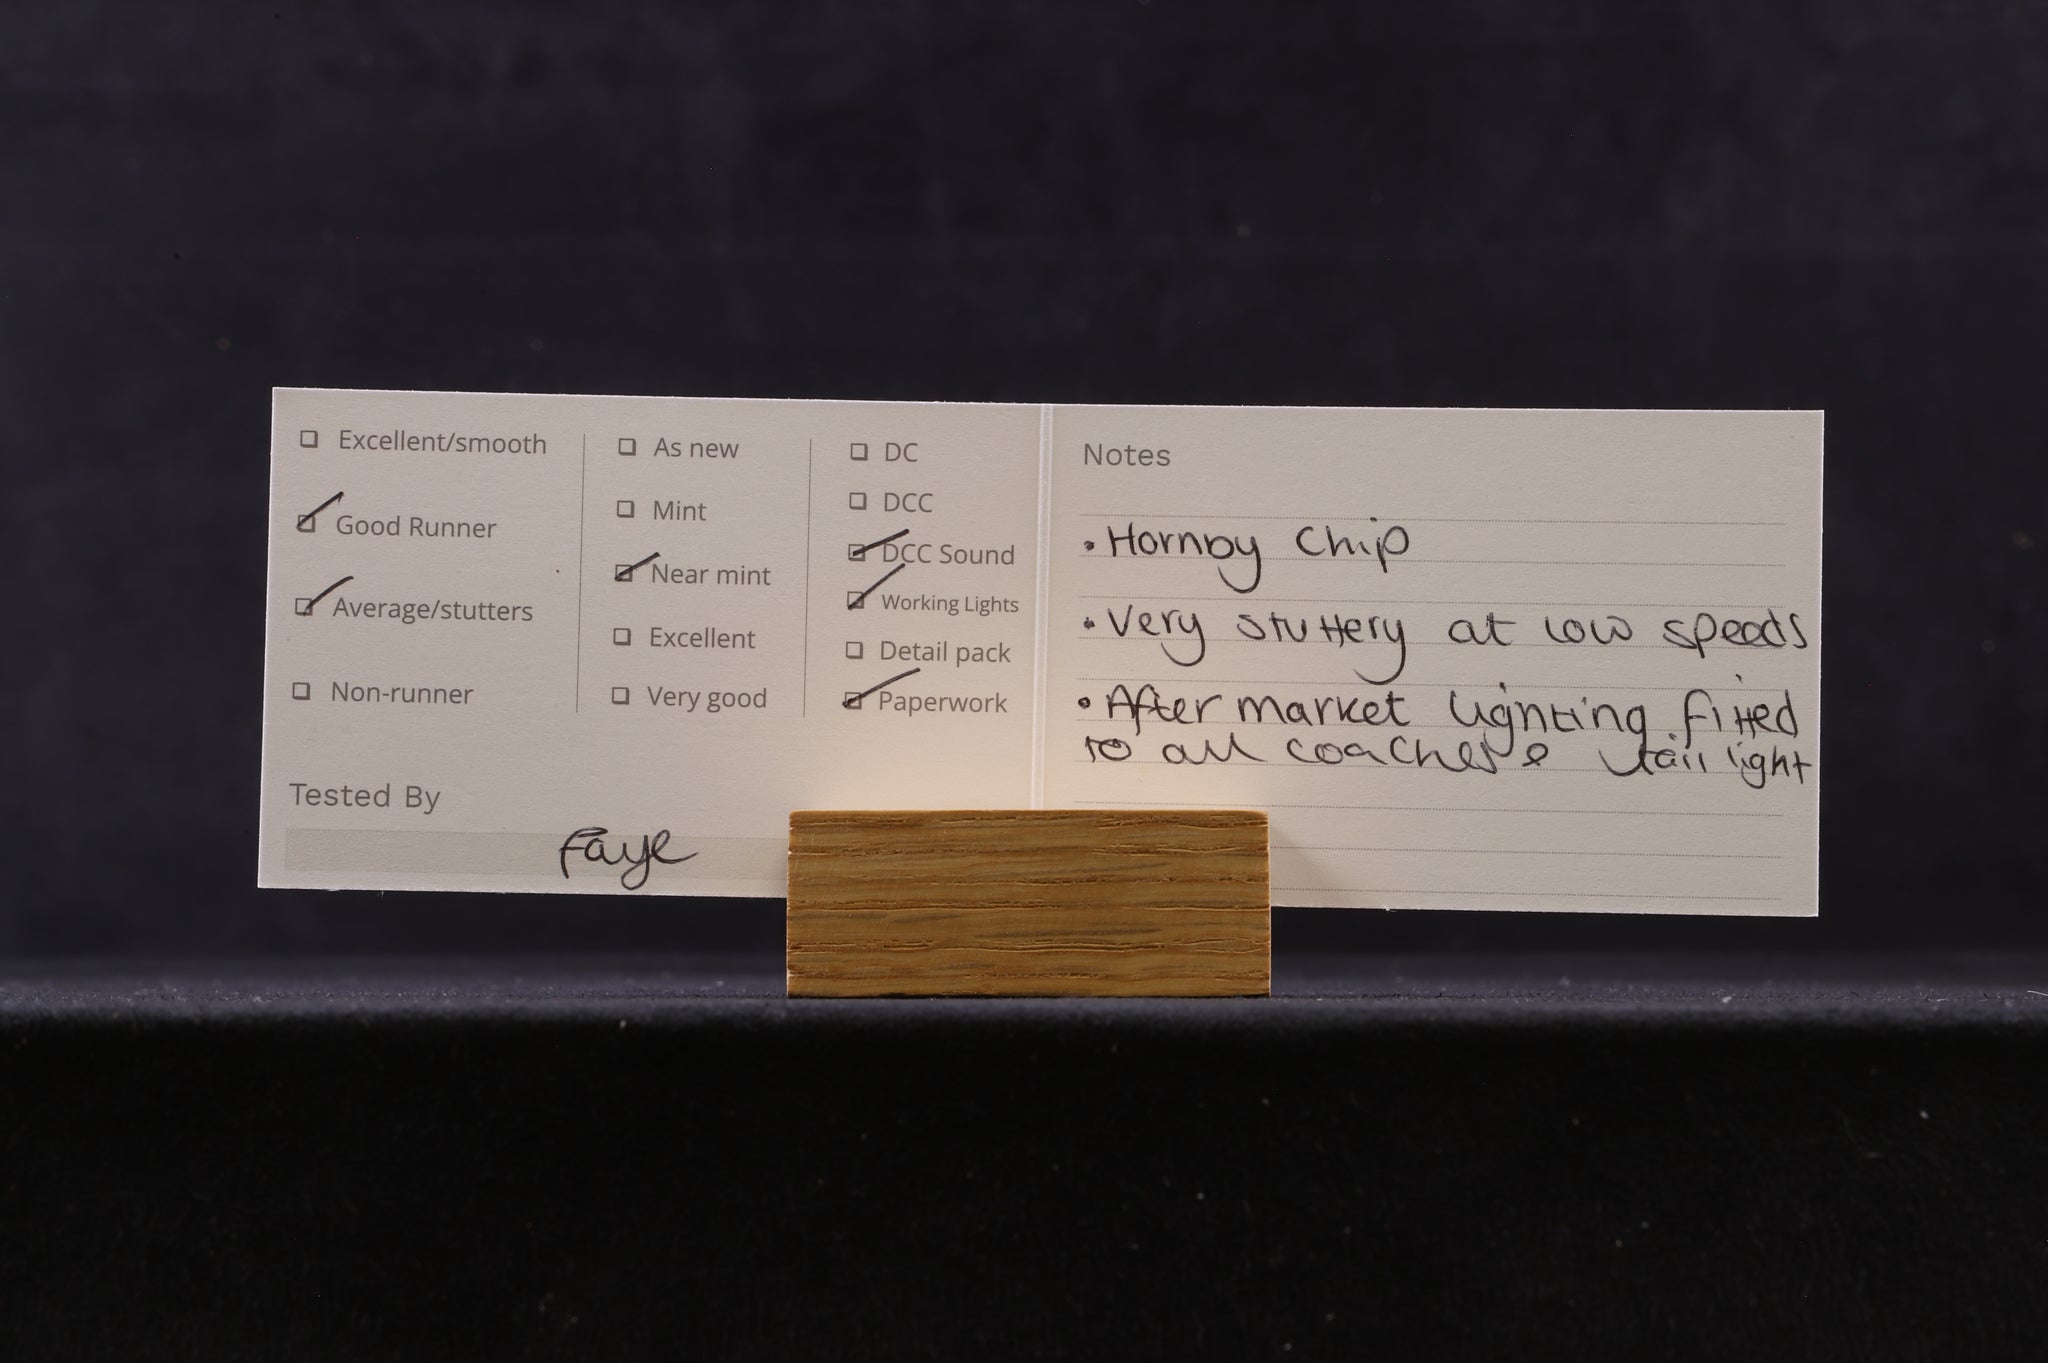 Excellent/smooth
Good Runner
Average/stutters
Non-runner
As new
Mint
Near mint
Excellent
Very good
DC
DCC
DCC Sound
Working Lights
Detail pack
Paperwork
Tested By
Faye
Notes
• Hornby Chip
• Very stuttery at low speeds
• After market lighting fitted
to all coaches & tail light